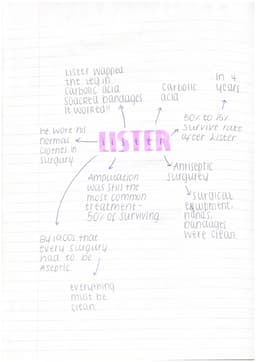 Lister wapped
the leg in
Carbolic acid
soacked bandages
it worked!!
Carbolic
acid
in 4
years
he wore his
normal
clothes in
surgury
LISTER
survive rate
after Lister
Amputation
was still the
most common
treatment -
50% of surviving.
Antiseptic
surgurey
surgical
equiptment,
hands,
bandages
were clean.
By 1900s that
every surgury
had to be
Aseptic.
everything
must be
clean.